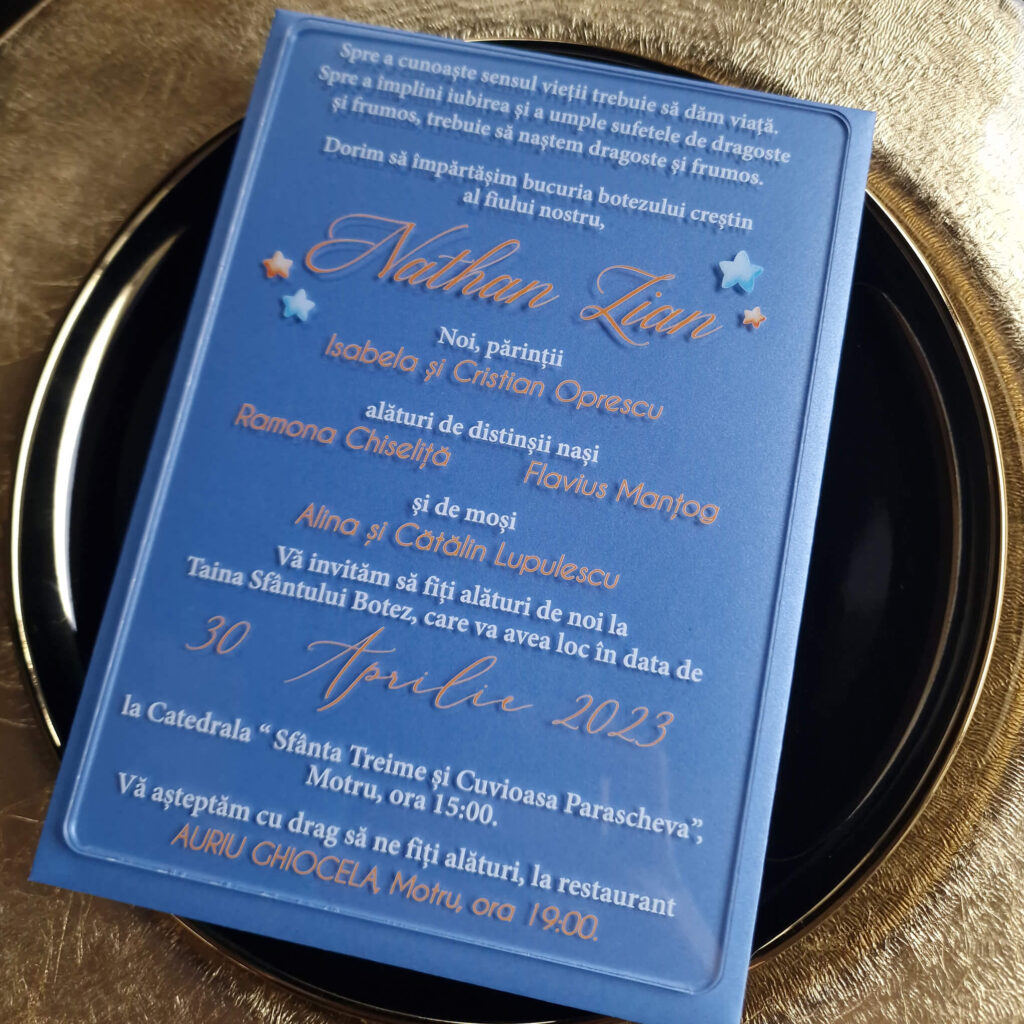 Spre a cunoaște sensul vieții trebuie să dăm viață.
Spre a împlini iubirea și a umple sufetele de dragoste
și frumos, trebuie să naștem dragoste și frumos.
Dorim să împărtășim bucuria botezului creștin
al fiului nostru,
Nathan Zian
Noi, părinții
Isabela și Cristian Oprescu
alături de distinșii nași
Ramona Chiseliță Flavius Manțog
și de moși
Alina și Cătălin Lupulescu
Vă invităm să fiți alături de noi la
Taina Sfântului Botez, care va avea loc în data de
30 Aprilie 2023
la Catedrala “ Sfânta Treime și Cuvioasa Parascheva”,
Motru, ora 15:00.
Vă așteptăm cu drag să ne fiți alături, la restaurant
AURIU GHIOCELA, Motru, ora 19:00.